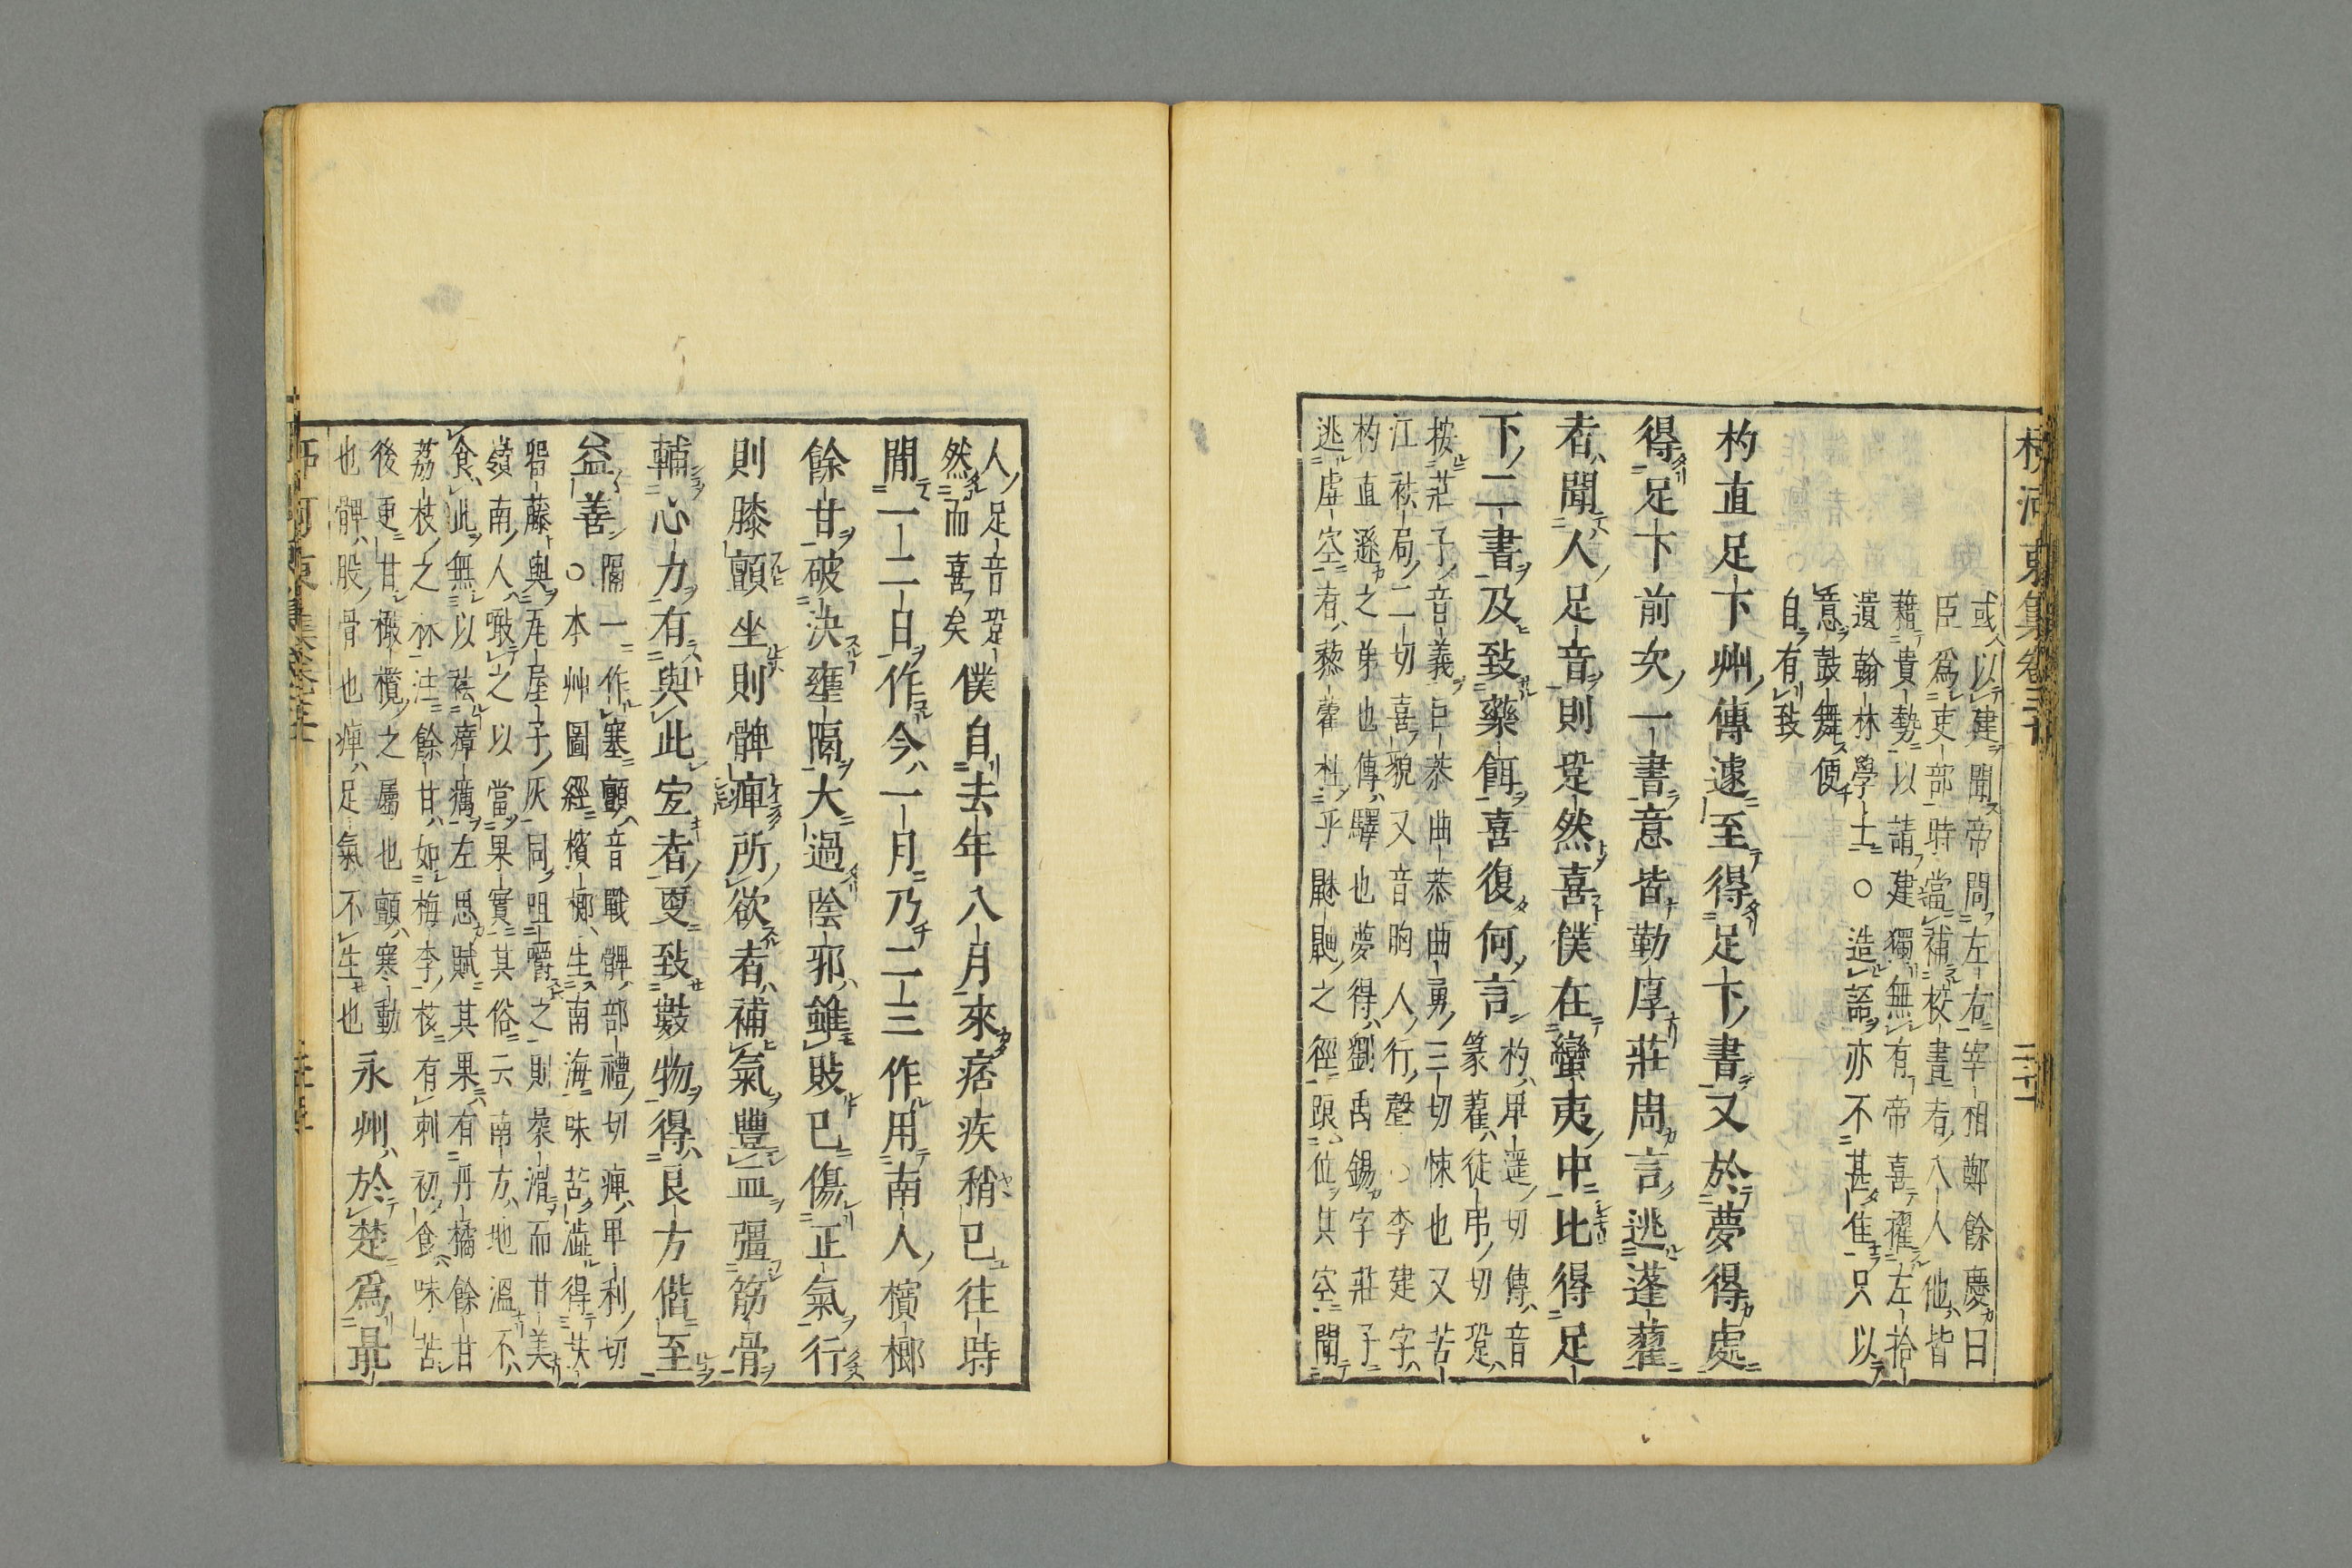 柳河東集卷三十　二十一
或以建聞帝問左右宰相鄭餘慶曰
臣爲吏部時當補校書者八人他皆
藉貴勢以請建獨無有帝喜擢左拾
遺翰林學士○造語亦不甚隹只以
意鼓舞便
自有致
杓直足下州傳遽至得足下書又於夢得處
得足下前次一書意皆勤厚莊周言逃蓬藋
者聞人足音則跫然喜僕在蠻夷中比得足
下二書及致藥餌喜復何言
杓甲遥切傳音
篆藋徒吊切跫
按莊子音義巨恭曲恭曲勇三切悚也又苦
江袪局二切喜貌又音胸人行聲○李建字
杓直遜之弟也傳驛也夢得劉禹錫字莊子
逃虛空者藜藿柱乎鼪鼬之徑踉位其空聞
人足音跫
然而喜矣
僕自去年八月來痞疾稍已往時
間一二日作今一月乃二三作用南人檳榔
餘甘破決壅隔大過陰邪雖敗已傷正氣行
則膝顫坐則髀痺所欲者補氣豐血彊筋骨
輔心力有與此宜者更致數物得良方偕至
益善
隔一作塞顫音戰髀部禮切痺甲利切
○本艸圖經檳榔生南海味苦澁得扶
畱藤與瓦屋子灰同咀嚼之則柔滑而甘美
嶺南人噉之以當果實其俗云南方地溫不
食此無以袪瘴癘左思賦其果有丹橘餘甘
荔枝之林注餘甘如梅李核有刺初食味苦
後更甘橄欖之屬也顫寒動
也髀股骨也痺足氣不生也
永州於楚爲最